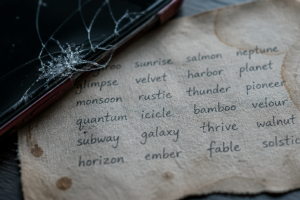 sunrise salmon neptune
glimpse velvet harbor planet
monsoon rustic thunder pioneer
quantum icicle bamboo velour
subway galaxy thrive walnut
horizon ember fable